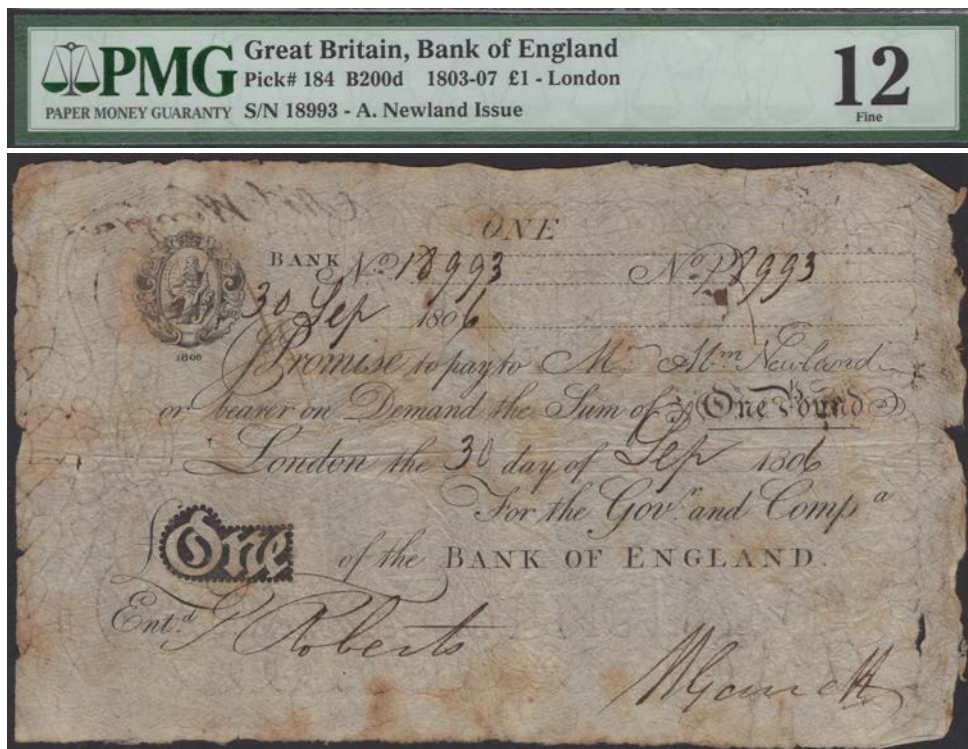 PMG
PAPER MONEY GUARANTY
Great Britain, Bank of England
Pick# 184 B200d 1803-07 £1 - London
S/N 18993 - A. Newland Issue
12
Fine
ONE
BANK No 18993 No 18993
30 Sep 1806
1806
I Promise to pay to Mr. Abm Newland
or bearer on Demand the Sum of One Pound
London the 30 day of Sep 1806
For the Govr. and Compa
One of the BANK OF ENGLAND.
Entd. Roberts